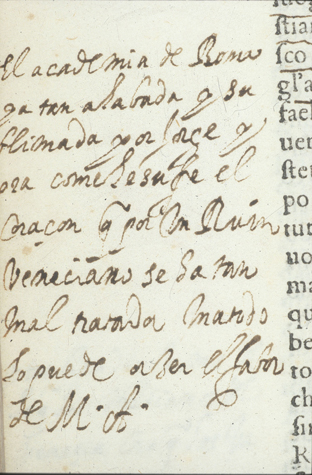 El academia de Roma
ya tan alabada y su
blimada por Jorge y
ora como le sufre el
coraçon q por un Ruin
Veneciano se ha tan
mal tratado todo
lo puede aber el
de M. A.
stian
sco
gl'a
fael
uer
stet
po
tut
uo
ma
qu
be
to
ch
R